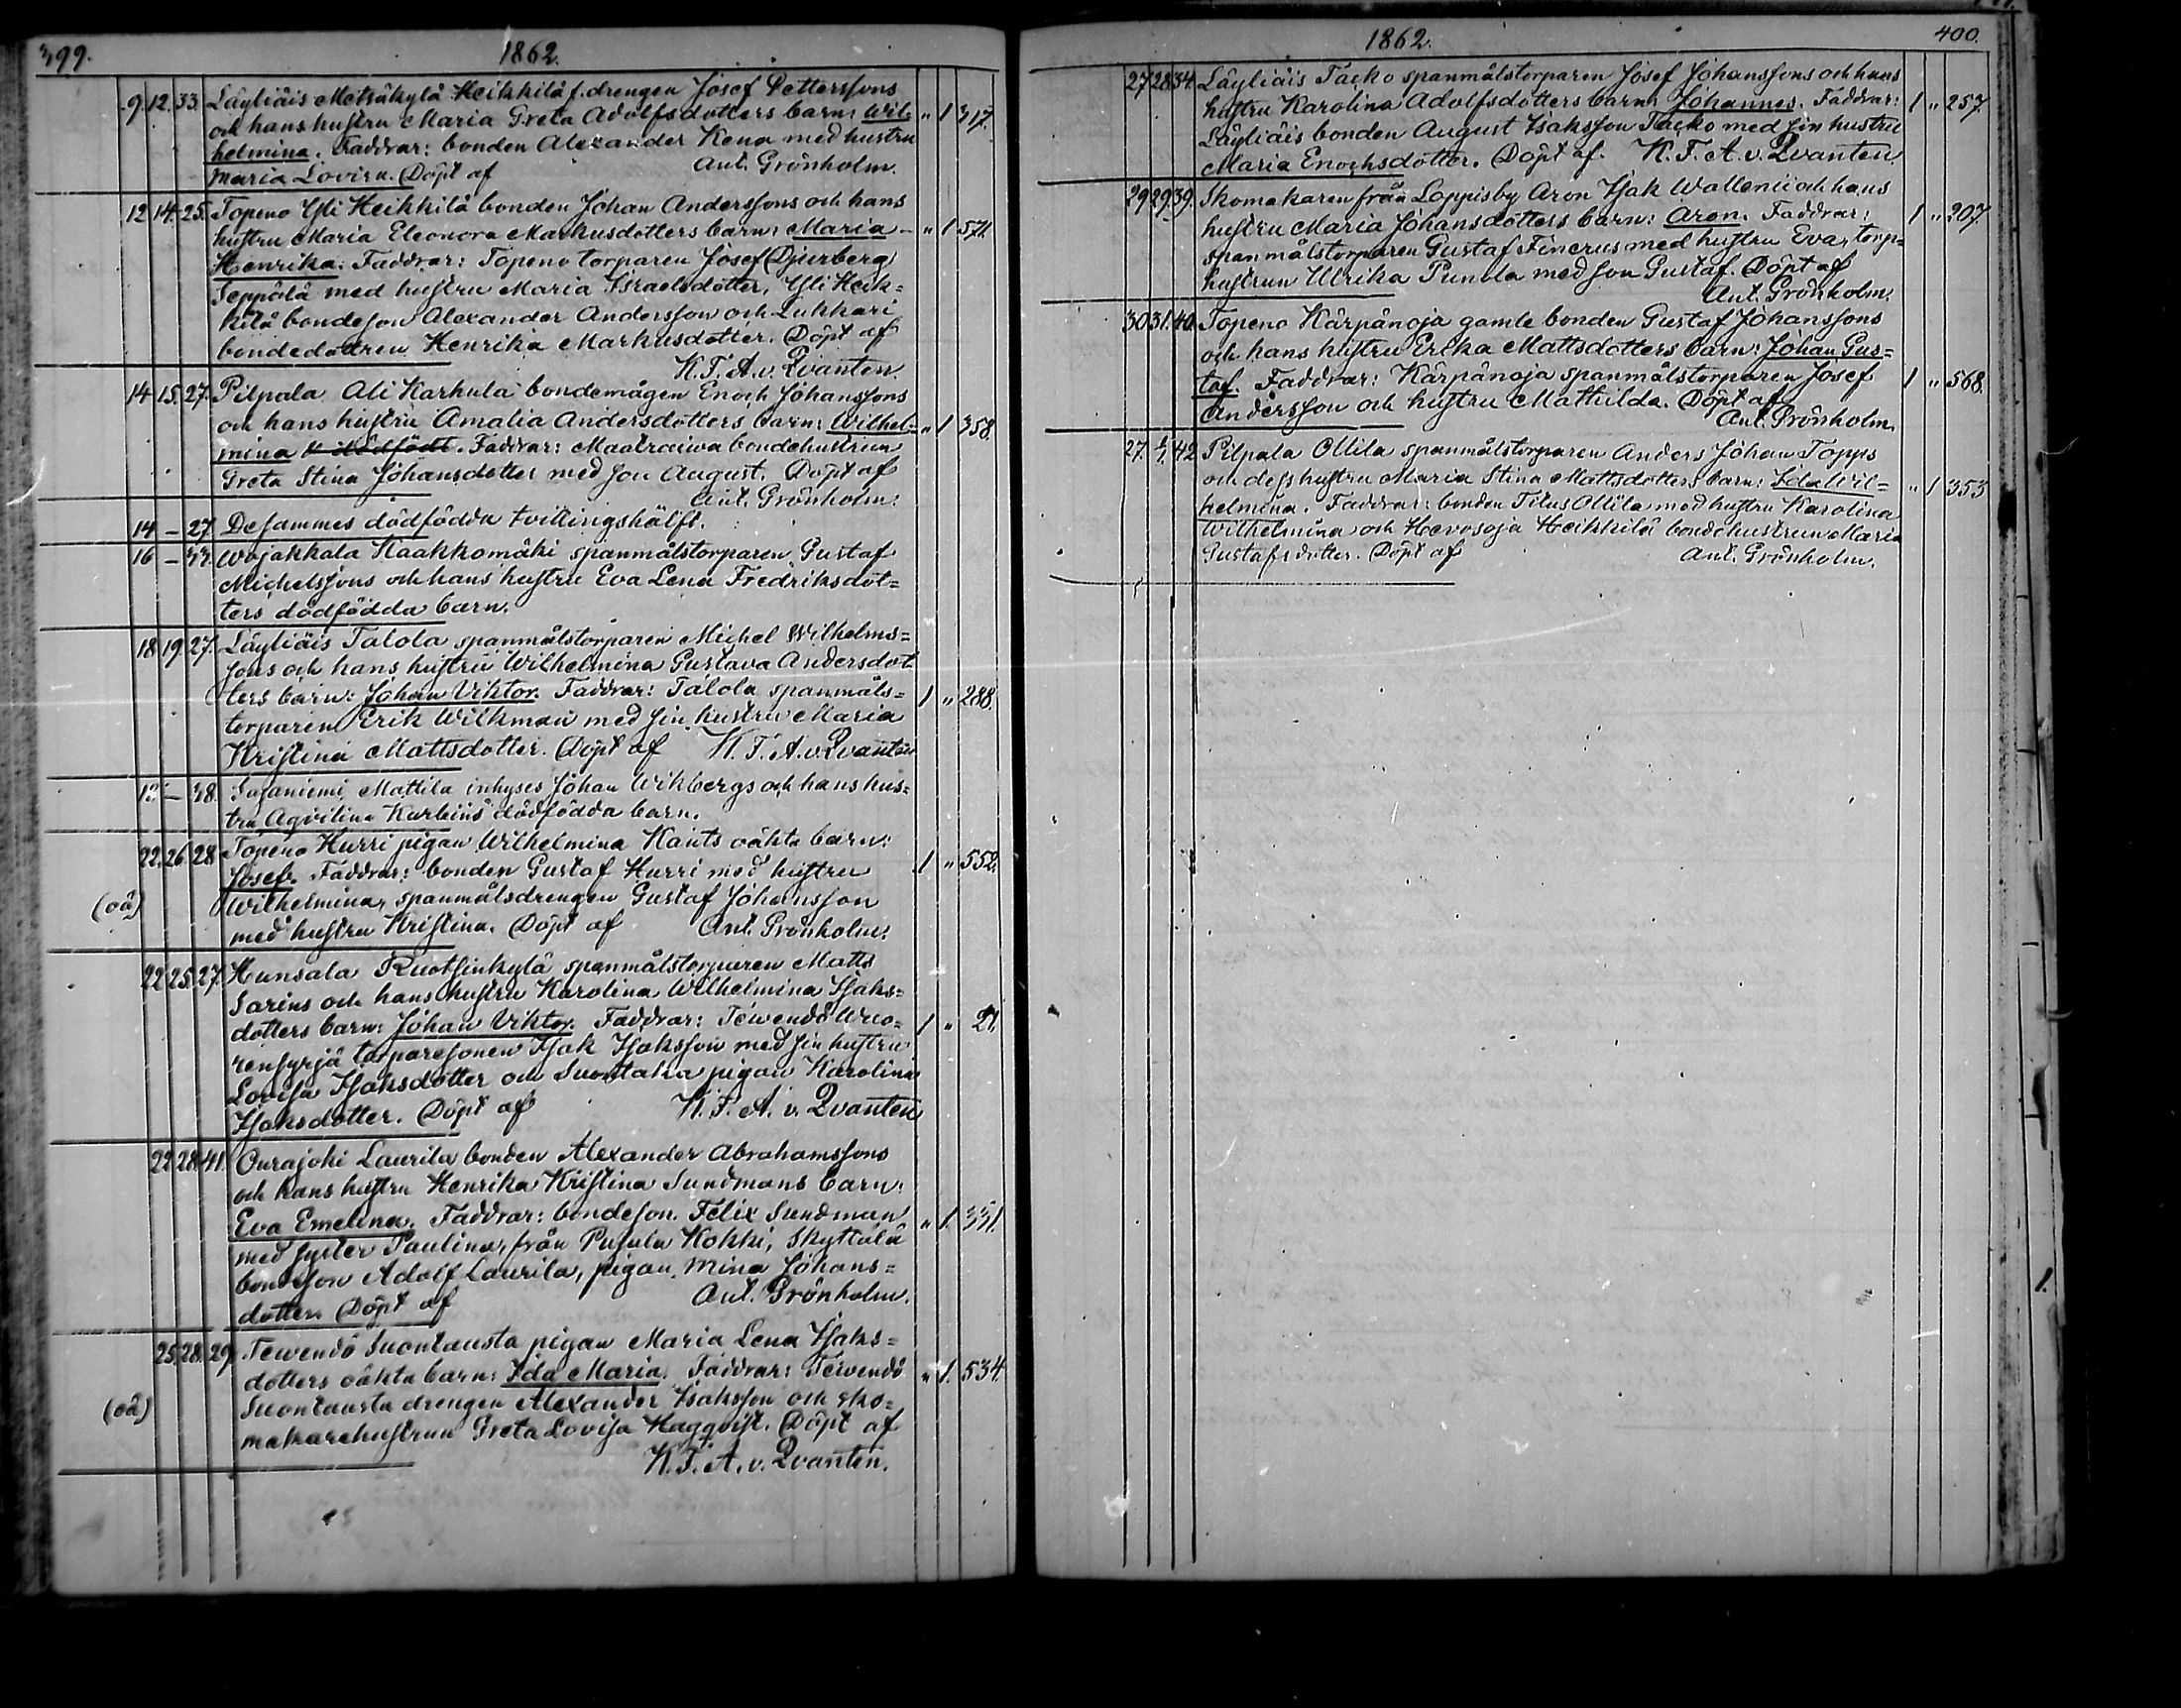 399.
1862.
9. 12. 33. Läyliäis Metsäkylä Heikkilä f.drengen Josef Petterssons
och hans hustru Maria Greta Adolfsdotters barn: Wil=
helmina. Faddrar: bonden Alexander Kena med hustru
Maria Lovisa. Döpt af Ant. Grönholm.
" 1 317.
12 14. 25. Topeno Yli Heikkilä bonden Johan Anderssons och hans
hustru Maria Eleonora Markusdotters barn: Maria - " 1 571.
Henrika. Faddrar: Topeno torparen Josef (Djurberg)
Seppälä med hustru Maria Israelsdotter, Yli Heik=
kilä bondeson Alexander Andersson och Lukkari
bondedottren Henrika Markusdotter. Döpt af
K. F. A. v. Qvanten.
14 15. 27. Pilpala Ali Karhula bondemågen Enoch Johanssons
och hans hustru Amalia Andersdotters barn: Wilhel= " 1 358.
mina . Faddrar: Maatraiwa bondehustrun
Greta Stina Johansdotter med son August. Döpt af
Ant. Grönholm.
14 — 27. Desammes dödfödda tvillingshälft.
16 — 33. Wojakkala Kaakkomäki spanmålstorparen Gustaf
Michelssons och hans hustru Eva Lena Fredriksdot=
ters dödfödda barn.
18 19. 27. Läyliäis Talola spanmålstorparen Michel Wilhelms=
sons och hans hustru Wilhelmina Gustava Andersdot
ters barn: Johan Viktor. Faddrar: Talola spanmåls= 1 " 288.
torparen Erik Wilkman med sin hustru Maria
Kristina Mattsdotter. Döpt af K. F. A. v. Qvanten
— 38. Sajaniemi Mattila inhyses Johan Wikbergs och hans hus=
tru Agvilina Karbins dödfödda barn.
22. 26. 28 Topeno Hurri pigan Wilhelmina Kants oäkta barn:
Josef. Faddrar: bonden Gustaf Hurri med hustru 1 " 552.
(oä) Wilhelmina, spanmålsdrengen Gustaf Johansson
med hustru Kristina. Döpt af Ant. Grönholm.
22 25. 27. Hunsala Ruotsinkylä spanmålstorparen Matts
Sarins och hans hustru Karolina Wilhelmina Isaks=
dotters barn: Johan Viktor. Faddrar: Tewendö Wuo= 1 " 21.
rensyrjä torparesonen Isak Isaksson med sin hustru
Lovisa Isaksdotter och Suontaka pigan Karolina
Isaksdotter. Döpt af K. F. A. v. Qvanten
22. 28. 41. Ourajoki Laurila bonden Alexander Abrahamssons
och hans hustru Henrika Kristina Sundmans barn:
Eva Emelina. Faddrar: bondeson Felix Sundman " 1. 331.
med syster Paulina, från Pusula Kokki, Skyttälä
bondeson Adolf Laurila, pigan Mina Johans=
dotter. Döpt af Ant. Grönholm.
25. 28. 29. Tewendö Suontausta pigan Maria Lena Isaks=
dotters oäkta barn: Ida Maria. Faddrar: Tewendö " 1. 534.
(oä) Suontausta drengen Alexander Isaksson och sko=
makarehustrun Greta Lovisa Hagqvist. Döpt af
K. F. A. v. Qvanten.
1862.
400.
27 28. 34. Läyliäis Tacko spanmålstorparen Josef Johanssons och hans
hustru Karolina Adolfsdotters barn: Johannes. Faddrar: 1 " 257
Läyliäis bonden August Isaksson Tacko med sin hustru
Maria Enochsdotter. Döpt af. K. F. A. v. Qvanten
29 29. 39. Skomakaren från Loppisby Aron Isak Wallenii och hans
hustru Maria Johansdotters barn: Aron. Faddrar: 1 " 207
spanmålstorparen Gustaf Finerus med hustru Eva, torp=
hustrun Ulrika Punola med son Gustaf. Döpt af
Ant. Grönholm.
30 31. 40. Topeno Kärpänoja gamle bonden Gustaf Johanssons
och hans hustru Erika Mattsdotters barn: Johan Gus=
taf. Faddrar: Kärpänoja spanmålstorparen Josef 1 " 568.
Andersson och hustru Mathilda. Döpt af
Ant. Grönholm.
27. 42 Pilpala Ollila spanmålstorparen Anders Johan Topps
och dess hustru Maria Stina Mattsdotters barn: Ida Wil= " 1 353
helmina. Faddrar: bonden Titus Ollila med hustru Karolina
Wilhelmina och Hevosoja Heikkilä bondehustrun Maria
Gustafsdotter. Döpt af Ant. Grönholm.